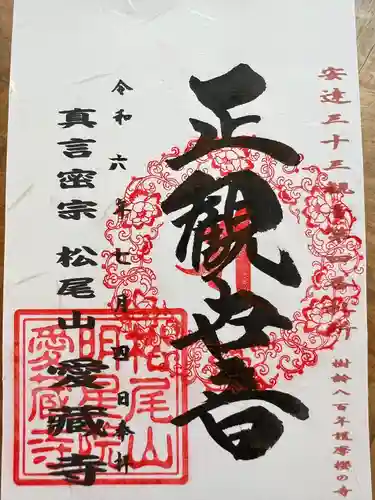 安達三十三観音第四番札所
樹齢八百年種蒔櫻の寺
正観世音
令和六年七月四日奉拝
真言密宗 松尾山愛藏寺
松尾山
明星院
愛蔵寺